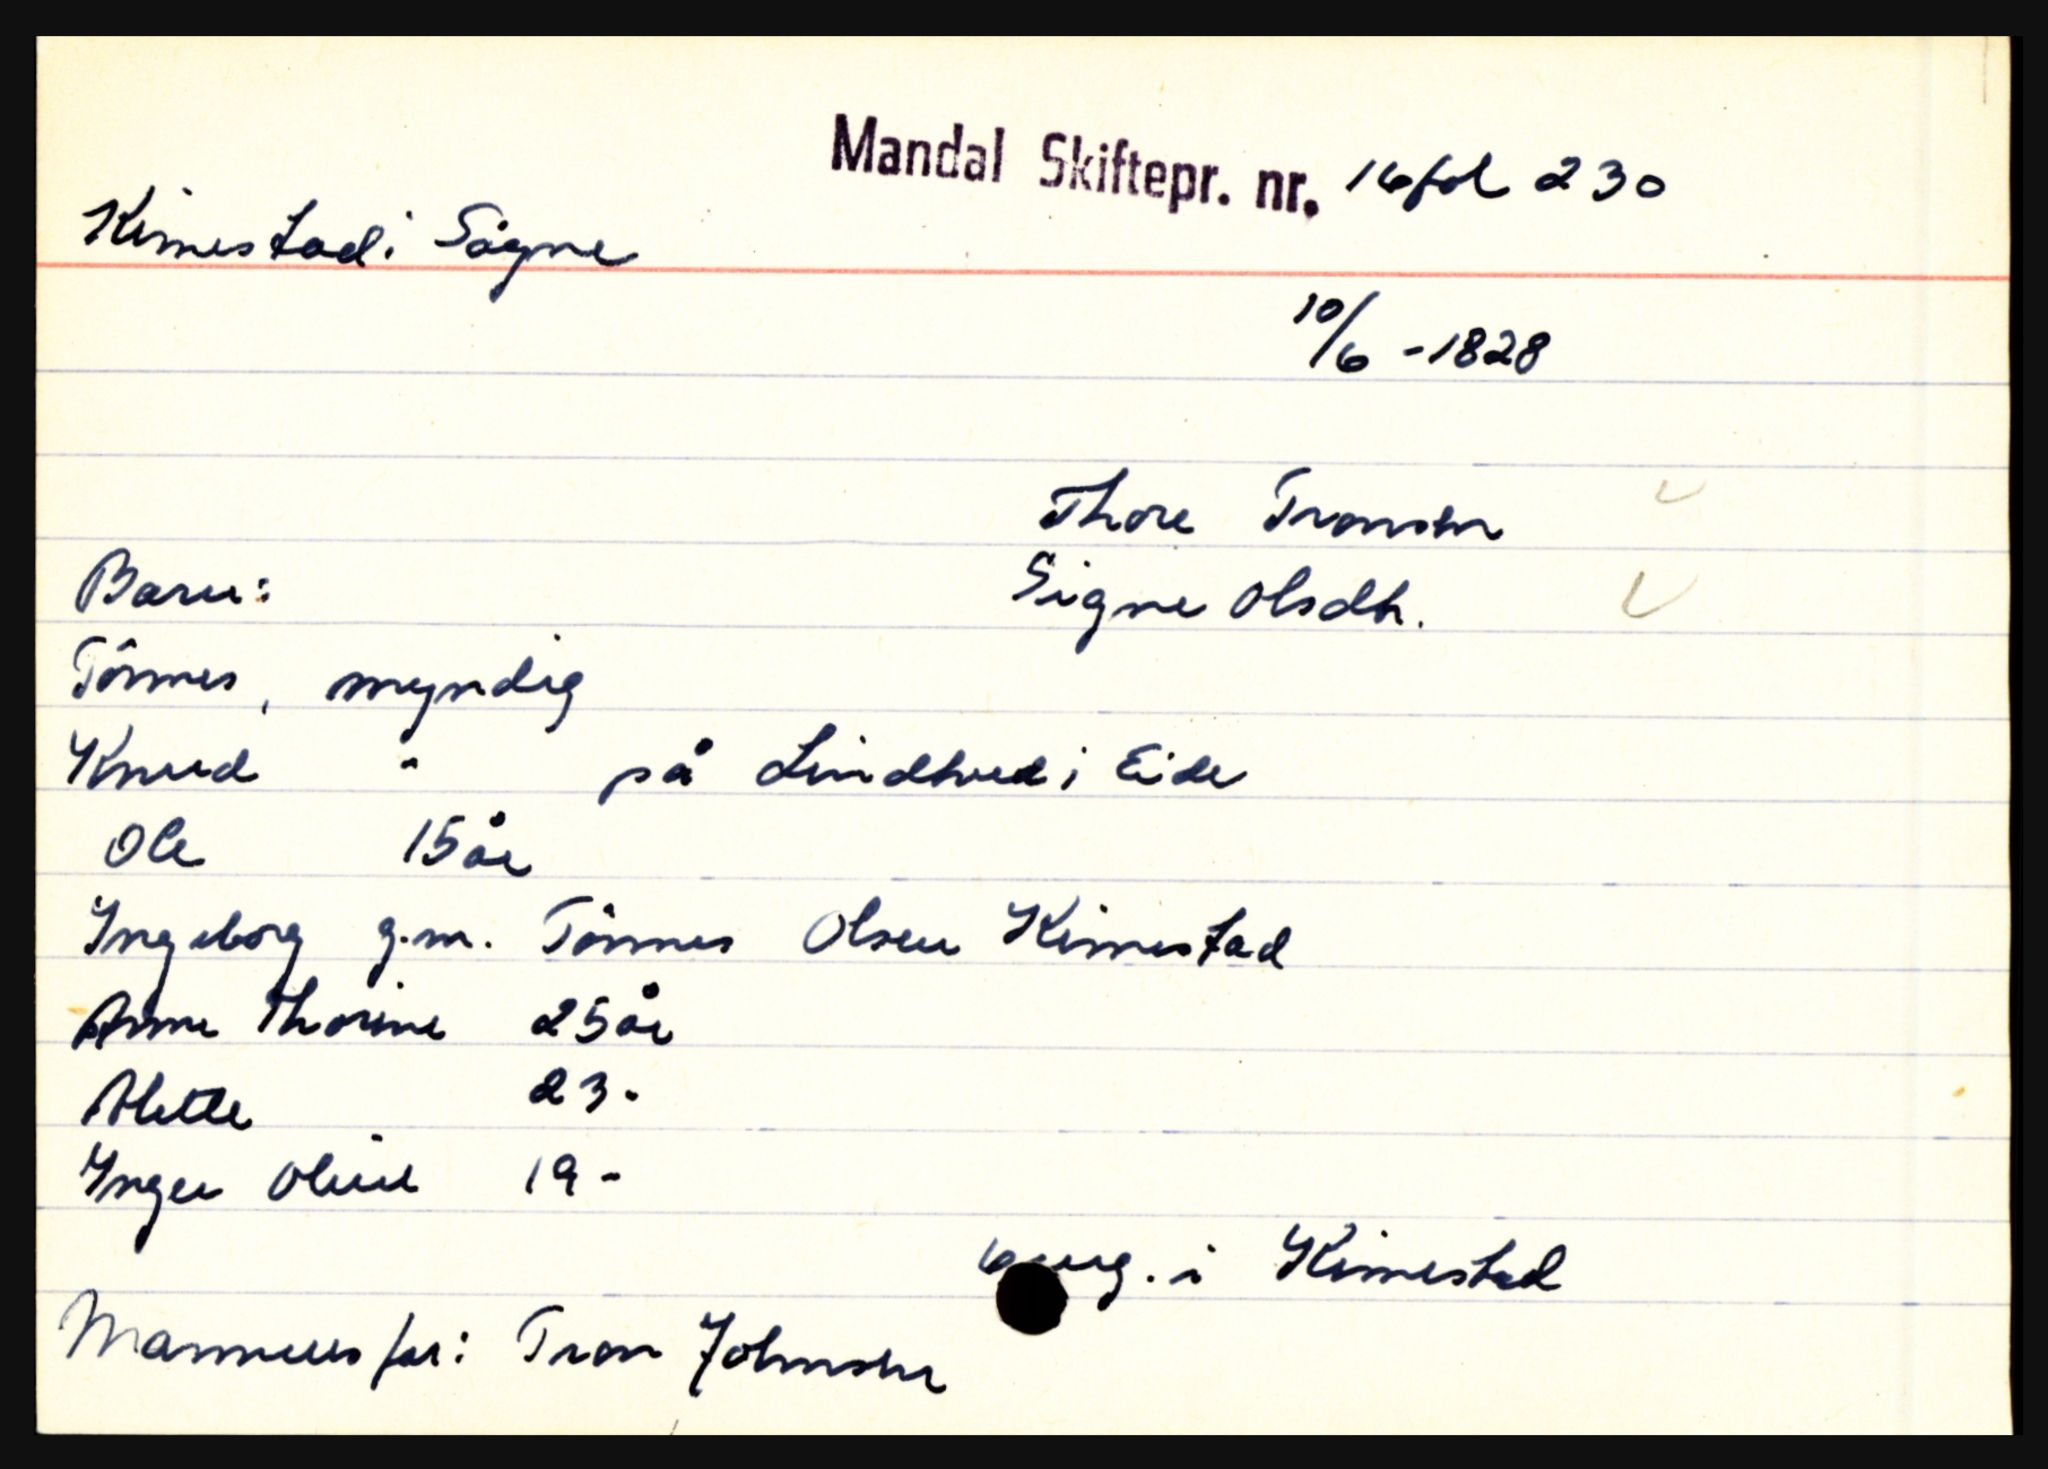 Mandal Skiftepr. nr. 16 fol 230
Kimestad i Sögne
10/6 - 1828
Thore Tronsen
Barn: Signe Olsdtr.
Tönnes, myndig
Knud " på Lindtved i Eide
Ole 15 år
Ingeborg g.m. Tönnes Olsen Kimestad
Anne Thorine 25 år
Alette 23 -
Inger Oline 19 -
i Kimestad
Mannens far: Tron Johnsen